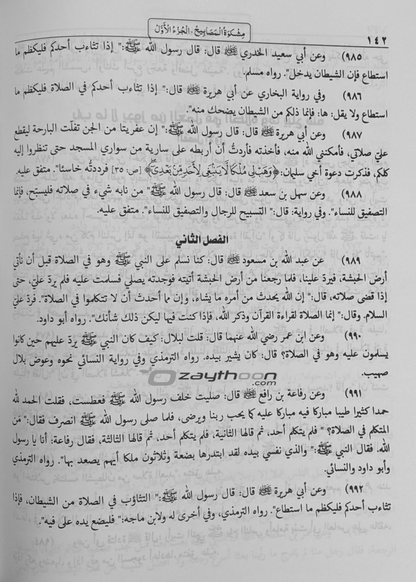 ١٤٢
مشكوة المصابيح: الجزء الأول
٩٨٥) وعن أبي سعيد الخدري ﷺ قال: قال رسول الله ﷺ: "إذا تثاءب أحدكم فليكظم ما
استطاع فإن الشيطان يدخل". رواه مسلم.
٩٨٦) وفي رواية البخاري عن أبي هريرة قال: "إذا تثاءب أحدكم في الصلاة فليكظم ما
استطاع ولا يقل: ها: فإنما ذلكم من الشيطان يضحك منه".
٩٨٧) وعن أبي هريرة قال: قال رسول الله ﷺ: "إن عفريتا من الجن تفلت البارحة ليقطع
علي صلاتي، فأمكنني الله منه، فأخذته فأردت أن أربطه على سارية من سواري المسجد حتى تنظروا إليه
كلكم، فذكرت دعوة أخي سليمان: ﴿وَهَبْ لِي مُلْكًا لَا يَنْبَغِي لِأَحَدٍ مِنْ بَعْدِي﴾ [ص ٣٥] فرددته خاسئا". متفق عليه.
٩٨٨) وعن سهل بن سعد قال: قال رسول الله ﷺ "من نابه شيء في صلاته فليسبح، فإنما
التصفيق للنساء". وفي رواية: قال: "التسبيح للرجال والتصفيق للنساء". متفق عليه.
الفصل الثاني
٩٨٩) عن عبد الله بن مسعود قال: كنا نسلم على النبي ﷺ وهو في الصلاة قبل أن نأتي
أرض الحبشة، فيرد علينا، فلما رجعنا من أرض الحبشة أتيته فوجدته يصلي فسلمت عليه فلم يرد علي، حتى
إذا قضى صلاته، قال: "إن الله يحدث من أمره ما يشاء، وإن ما أحدث أن لا تتكلموا في الصلاة". فرد علي
السلام. وقال: "إنما الصلاة لقراءة القرآن وذكر الله، فإذا كنت فيها ليكن ذلك شأنك". رواه أبو داود.
٩٩٠) وعن ابن عمر رضي الله عنهما قال: قلت لبلال: كيف كان النبي ﷺ يرد عليهم حين كانوا
يسلمون عليه وهو في الصلاة؟ قال: كان يشير بيده. رواه الترمذي وفي رواية النسائي نحوه وعوض بلال
صهيب.
Ozaythoon.com
٩٩١) وعن رفاعة بن رافع قال: صليت خلف رسول الله ﷺ فعطست، فقلت الحمد لله
حمدا كثيرا طيبا مباركا فيه مباركا عليه كما يحب ربنا ويرضى، فلما صلى رسول الله ﷺ انصرف فقال: "من
المتكلم في الصلاة؟" فلم يتكلم أحد، ثم قالها الثانية، فلم يتكلم أحد، ثم قالها الثالثة، فقال رفاعة: أنا يا رسول
الله. فقال النبي ﷺ: "والذي نفسي بيده لقد ابتدرها بضعة وثلاثون ملكا أيهم يصعد بها". رواه الترمذي
وأبو داود والنسائي.
٩٩٢) وعن أبي هريرة قال: قال رسول الله ﷺ: "التثاؤب في الصلاة من الشيطان، فإذا
تثاءب أحدكم فليكظم ما استطاع". رواه الترمذي، وفي أخرى له ولابن ماجه: "فليضع يده على فيه".